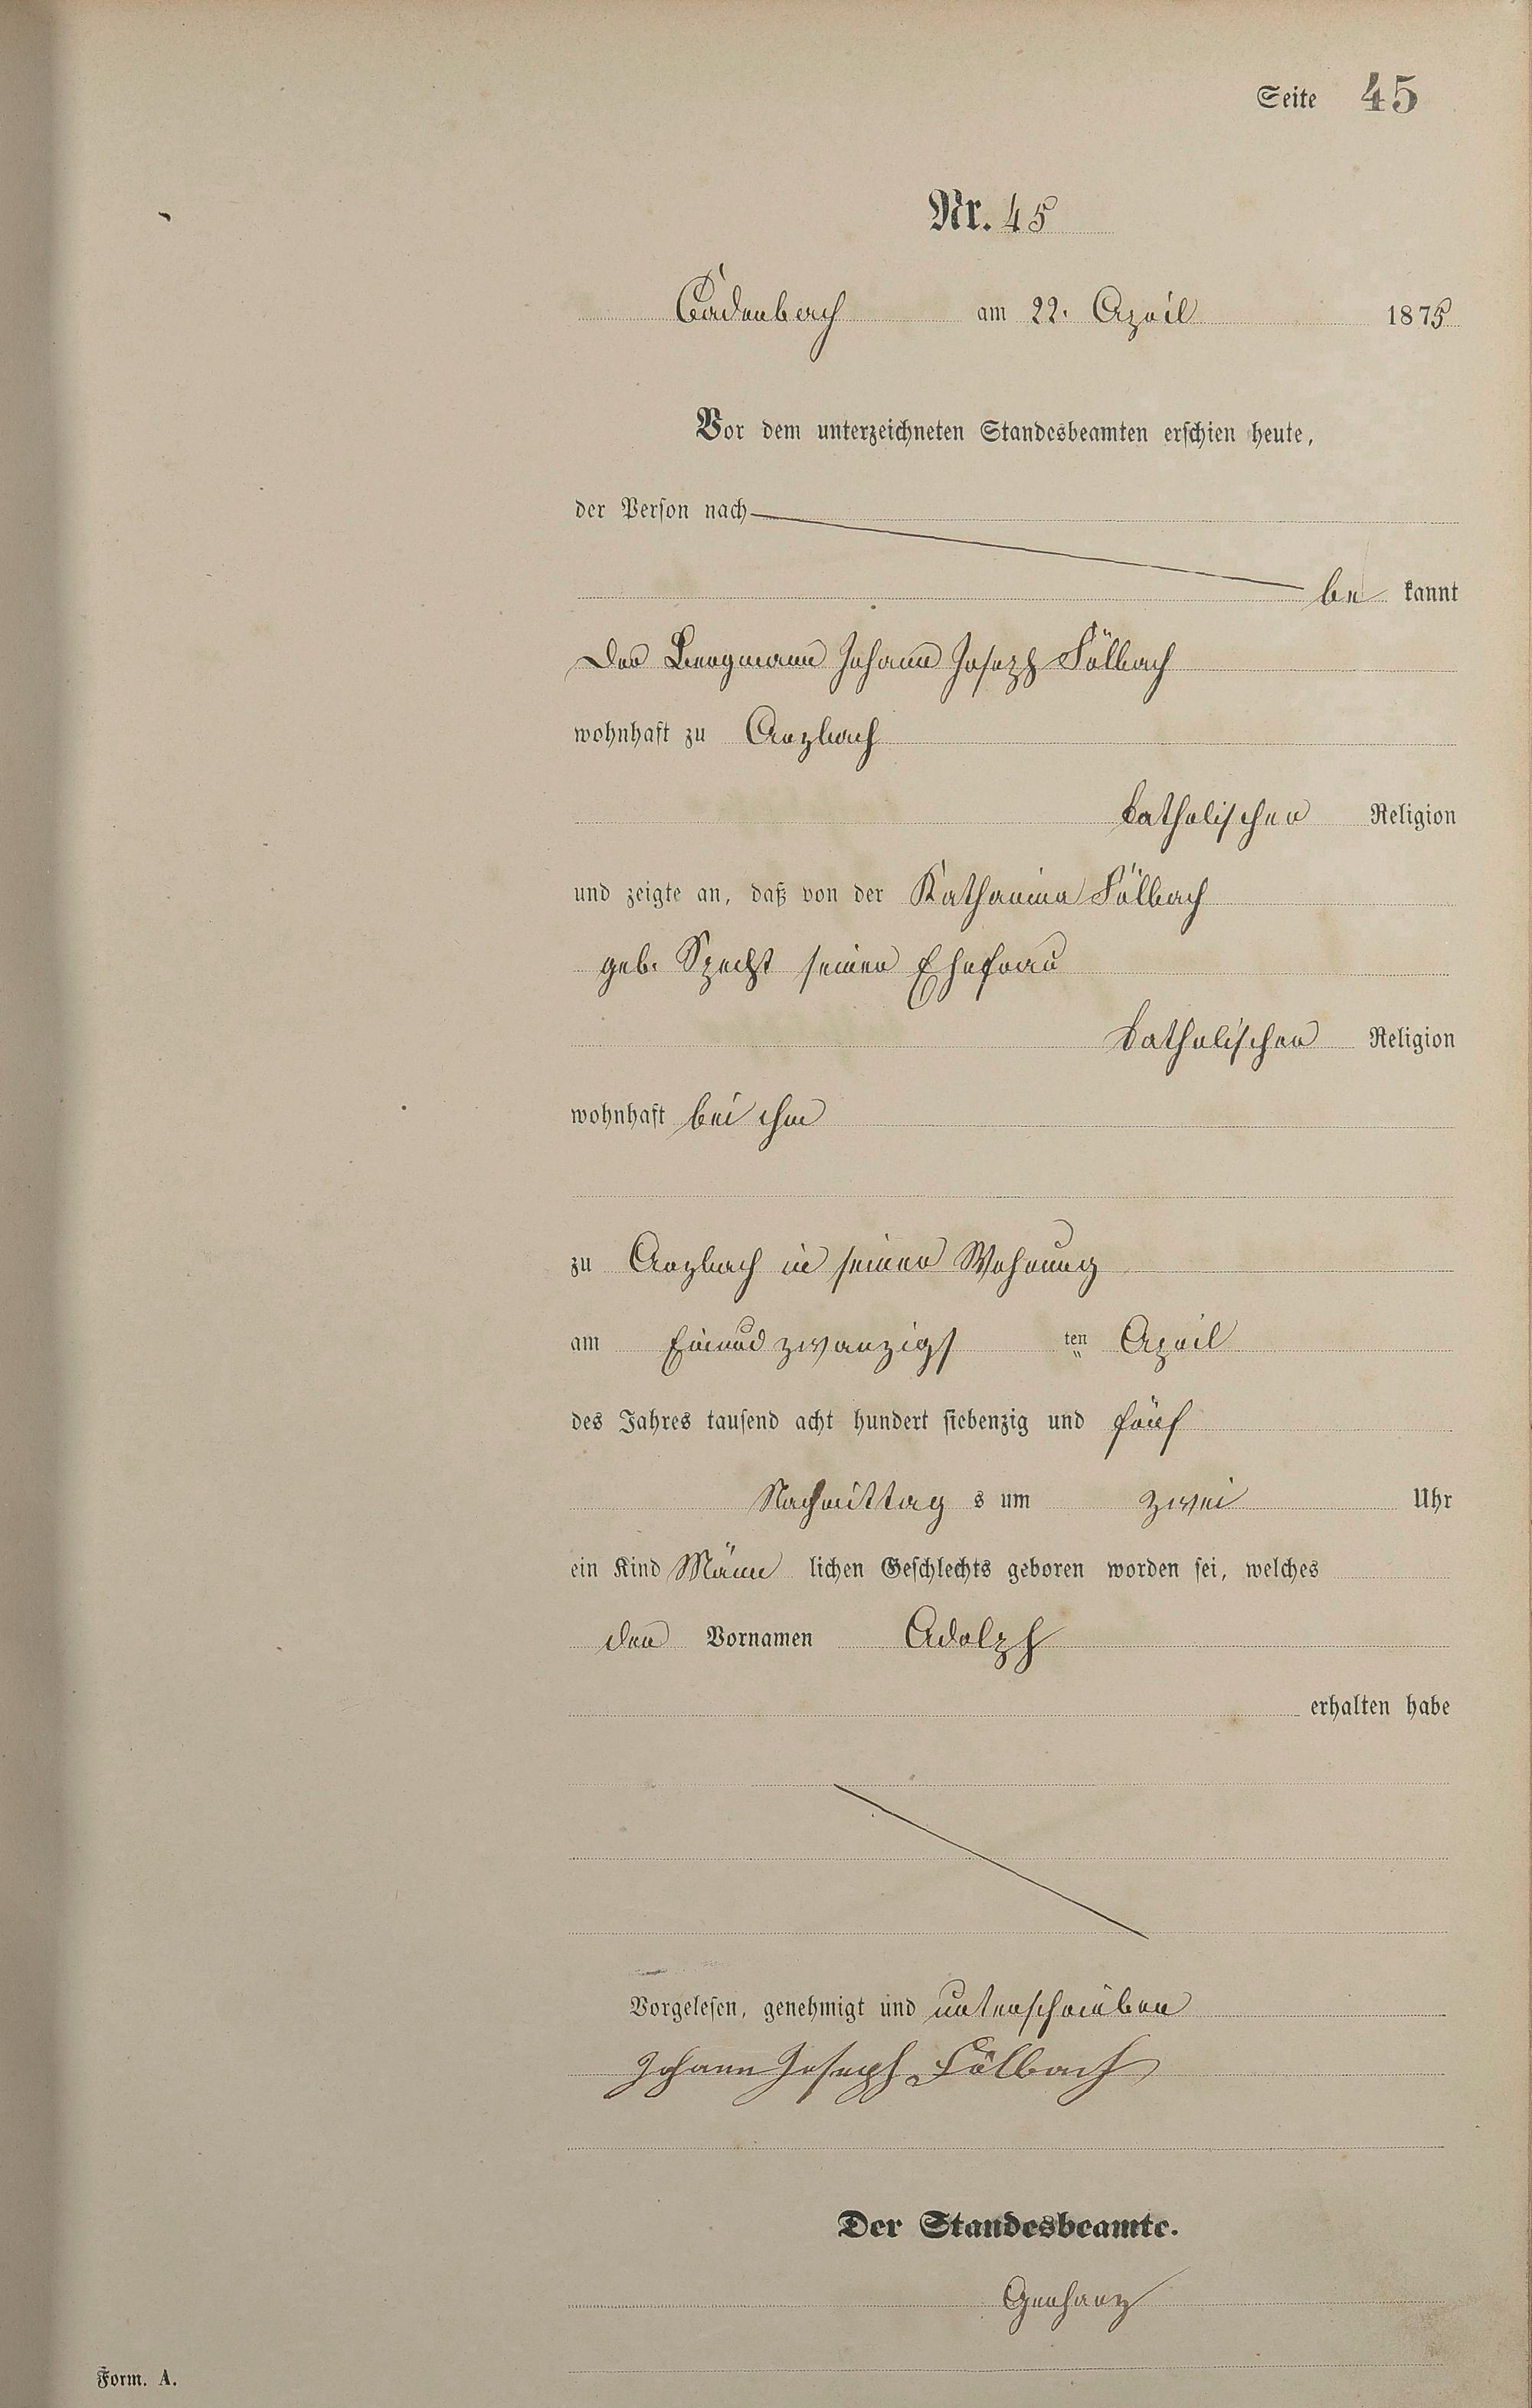 Seite 45
Nr. 45
Cadenbach am 22. April 1875
Vor dem unterzeichneten Standesbeamten erschien heute,
der Person nach
be kannt
Der Bergmann Johann Joseph Fölbach
wohnhaft zu Arzbach
katholischer Religion
und zeigte an, daß von der Katharina Fölbach
geb. Specht seiner Ehefrau
katholischer Religion
wohnhaft bei ihm
zu Arzbach in seiner Wohnung
am Einundzwanzigs ten April
des Jahres tausend acht hundert siebenzig und fünf
Nachmittag s um zwei Uhr
ein Kind Männ lichen Geschlechts geboren worden sei, welches
den Vornamen Adolph
erhalten habe
Vorgelesen, genehmigt und unterschrieben
Johann Joseph Fölbach
Der Standesbeamte.
Form. A.